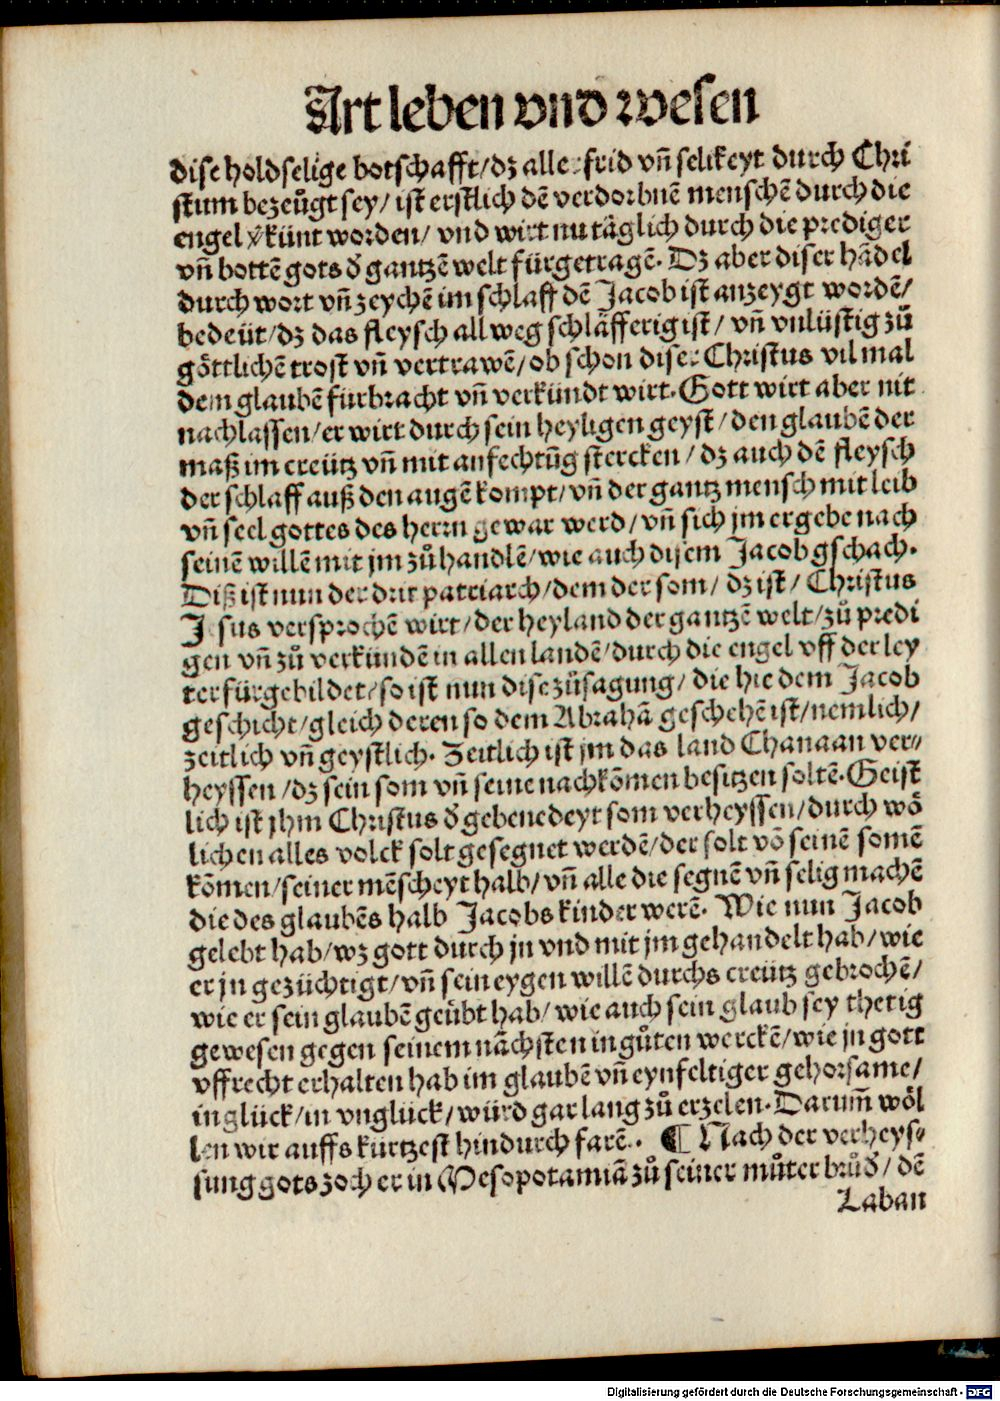 Art leben vnd wesen
dise holdselige botschafft/dz alle frid vñ selikeyt durch Chri
stum bezeůgt sey/ ist erstlich dē verdorbnē menschē durch die
engel v̈künt worden/ vnd wirt nu täglich durch die prediger
vñ bottē gots ď gantzē welt fürgetragē. Dz aber diser hādel
durch wort vñ zeychē im schlaff dē Jacob ist anzeygt wordē/
bedeüt/dz das fleysch allweg schläfferig ist/ vñ vnlüstig zů
göttlichē trost vñ vertrawē/ob schon diser Christus vil mal
dem glaubē fürbracht vñ verkündt wirt. Gott wirt aber nit
nachlassen/er wirt durch sein heyligen geyst/den glaubē der
maß im creütz vñ mit anfechtūg stercken/ dz auch dē fleysch
der schlaff auß den augē kompt/ vñ der gantz mensch mit leib
vñ seel gottes des herrn gewar werd/ vñ sich jm ergebe nach
seinē willē mit jm zů handlē/wie auch disem Jacob gschach.
Diß ist nun der drit patriarch/dem der som/ dz ist/ Christus
J sus versprochē wirt/der heyland der gantzē welt/zů predi
gen vñ zů verkündē in allen landē/durch die engel vff der ley
ter fürgebildet/so ist nun dise zůsagung/ die hie dem Jacob
geschicht/gleich deren so dem Abrahā geschehē ist/nemlich/
zeitlich vñ geystlich. Zeitlich ist jm das land Chanaan ver⸗
heyssen/dz sein som vñ seine nachkōmen besitzen soltē. Geist
lich ist jhm Christus ď gebenedeyt som verheyssen/durch wö
lichen alles volck solt gesegnet werdē/der solt vō seinē somē
kōmen/seiner mēscheyt halb/vñ alle die segnē vñ selig machē
die des glaubēs halb Jacobs kinder werē. Wie nun Jacob
gelebt hab/wz gott durch jn vnd mit jm gehandelt hab/wie
er jn gezüchtigt/vñ sein eygen willē durchs creütz gebrochē/
wie er sein glaubē geübt hab/wie auch sein glaub sey thetig
gewesen gegen seinem nächsten in gůten werckē/wie jn gott
vffrecht erhalten hab im glaubē vñ eynfeltiger gehorsame/
in glück/in vnglück/würd gar lang zů erzelen. Darum̄ wöl
len wir auffs kürtzest hindurch farē. ¶ Nach der verheys⸗
sung gots zoch er in Mesopotamiā zů seiner můter brůď/dē
Laban
Digitalisierung gefördert durch die Deutsche Forschungsgemeinschaft - DFG